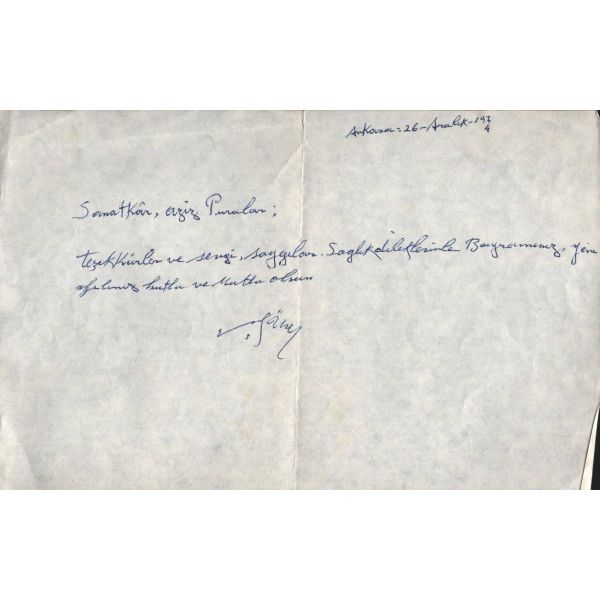 Ankara: 26-Aralık-197
4
Sanatkâr, aziz Puralar;
teşekkürler ve sevgi, saygılar. Sağlık dileklerimle Bayramınız, yeni
yılınız kutlu ve mutlu olsun